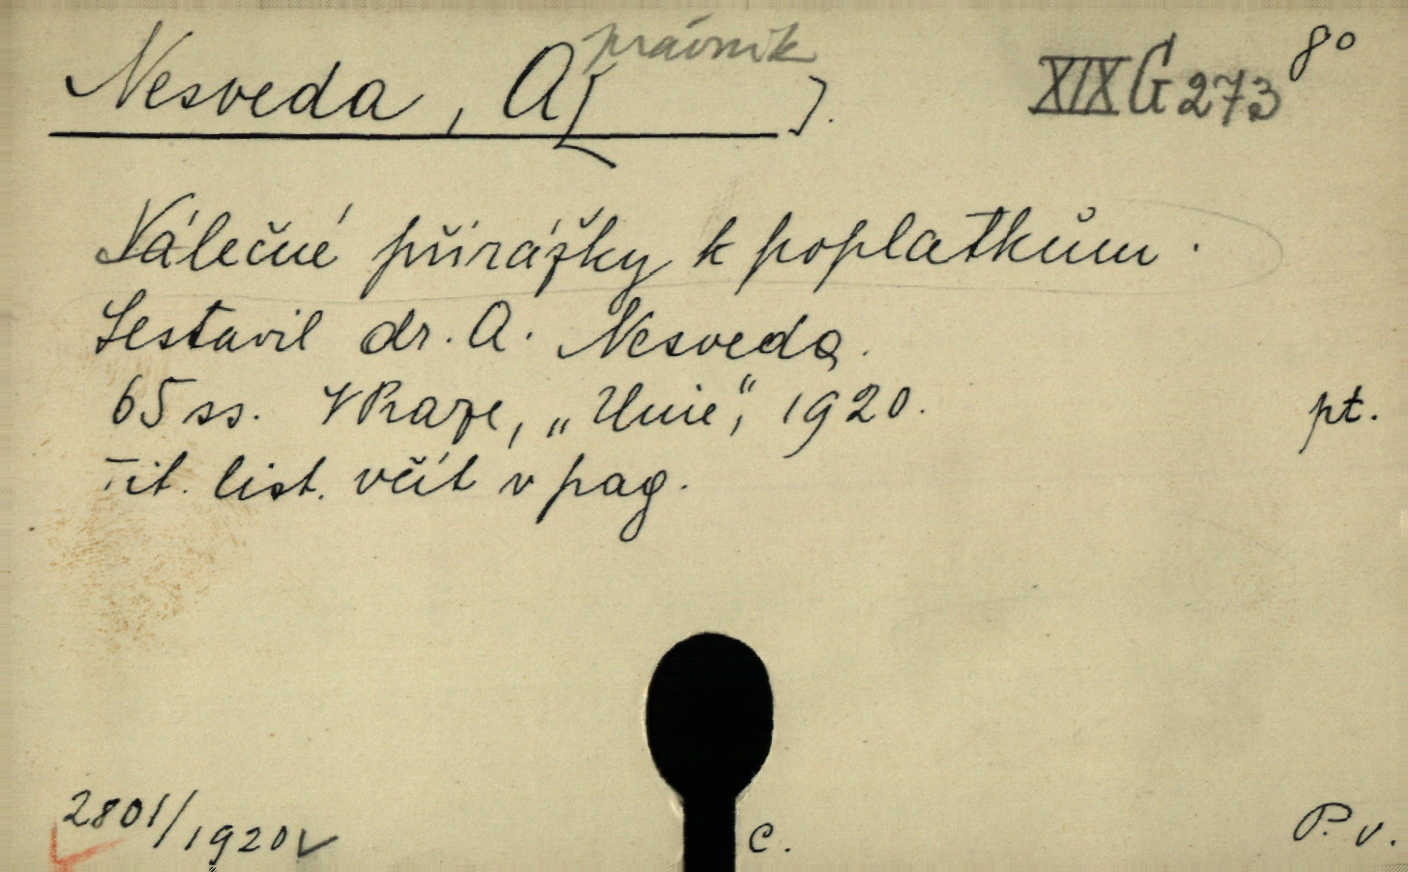 právník
Nesveda, A[ ].
XIX G 273 8°
Válečné přirážky k poplatkům.
Sestavil dr. A. Nesveda.
65 ss. V Praze, „Unie“, 1920. pt.
Tit. list. včít v pag.
2801/1920 c. P. v.